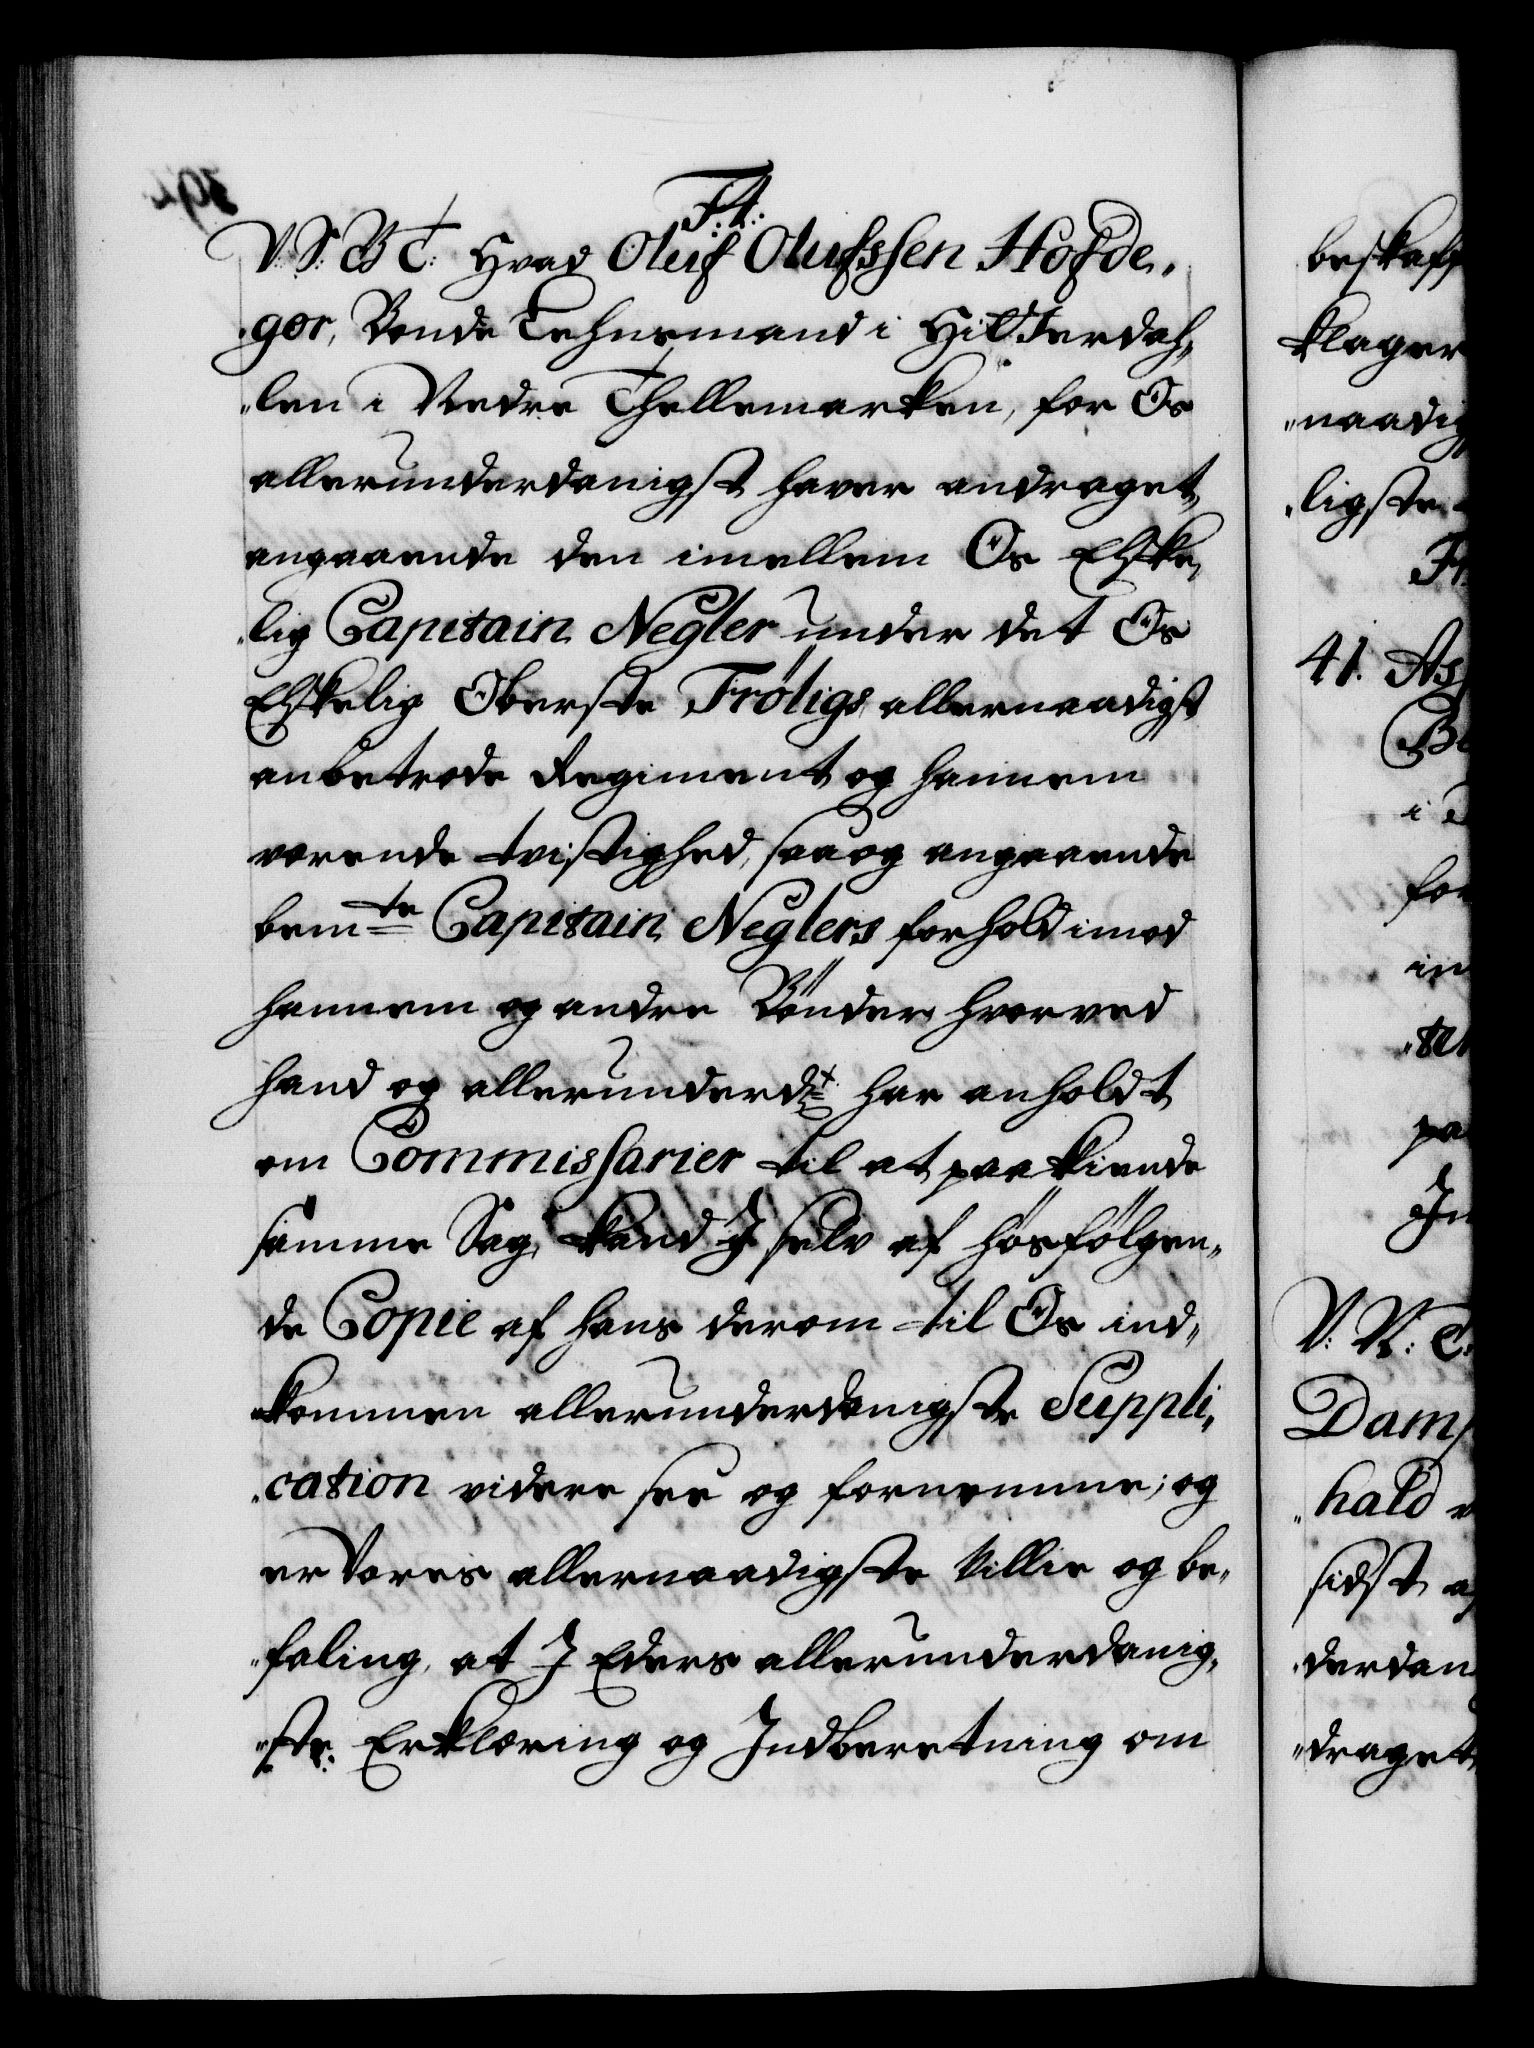 F: 4:
V: S: B C: Hvad Oluf Olufssen Hofde,,
,,gor, Bonde Lehnsmand i Hitterdah,,
,,len i Nedre Thellemarken, for Os
allerunderdanigst haver andraget,
angaaende den imellem Os Elske,,
,,lig Capitain Negler under det Os
Elskelig Oberste Fröligs allernaadigst
anbetroede Regiment og hannem
værende tvistighed, saa og angaaende
bemte Capitain Neglers forhold imod
hannem og andre Bönder hvorved
hand og allerunderdst har anholdt
om Commissarier til at paakiende
samme Sag, kand J selv af hosfölgen,,
de Copie af hans derom til Os ind,,
kommen allerunderdanigste Suppli,,
,,cation videre see og fornemme; og
er Vores allernaadigste Villie og be,,
,,faling, at J Eders allerunderdanig,,
,,ste Erklæring og Indberetning om
beskaff
klager
,,naadig
,,ligste
41. As
Be
i
for
in
pa
V: V: C:
Damp
,,hald
sidst
,,derdan
,,draget